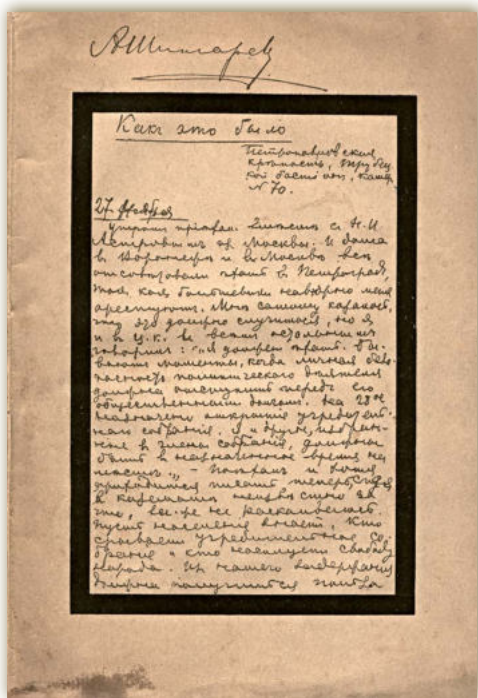 А Шингарев
Какъ это было
Петропавловская
крѣпость, Трубец
кой бастіонъ, камера
№ 70.
27 Ноября
утромъ пріѣхалъ вмѣстѣ с. Н. И.
Астровымъ из Москвы. И дома
в Воронежѣ и в Москвѣ всѣ
отсовѣтовали ѣхать в Петроградъ,
такъ какъ большевики навѣрно меня
арестуютъ. Мнѣ самому казалось,
что это должно случиться, но я
и в Ц.К. и всѣмъ остальнымъ
говорилъ: "я долженъ ѣхать. Бы-
ваютъ моменты, когда личная безо-
пасность политическаго дѣятеля
должна отступить передъ его
общественнымъ долгомъ. На 28 ноя
назначено открытіе учредитель-
наго собранія. Я и другіе, избран-
ные в члены собранія, должны
быть в назначенное время на
мѣстѣ". –
приходится теперь, сидя
в казематѣ неизвѣстно за
что, все же не раскаиваюсь.
Пусть населеніе знаетъ, кто
срываетъ учредительное со-
браніе и кто насилуетъ свободу
народа. Из нашего задержанія
должна получиться